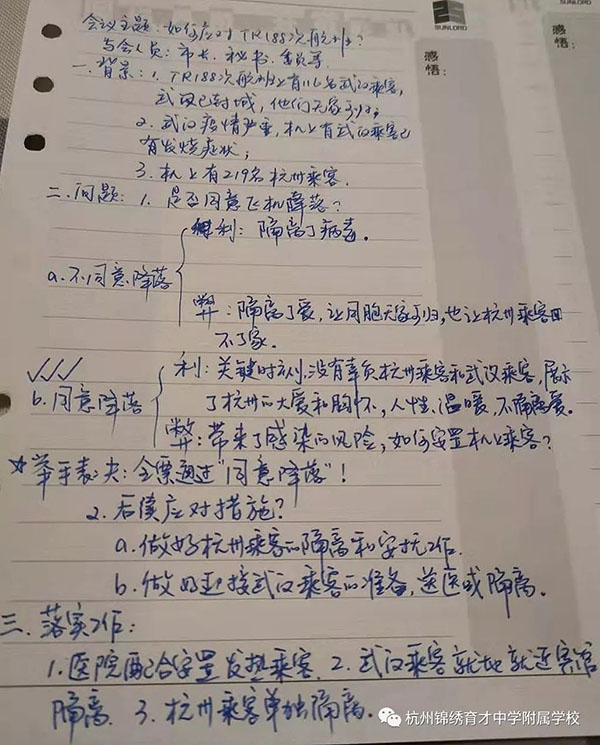 SUNLORD
SUNLORD
感悟:
感悟:
会议主题:如何应对TR188次航班?
与会人员:市长、秘书、委员等
一.背景:1.TR188次航班上有116名武汉乘客,
武汉已封城,他们无家可归;
2.武汉疫情严重,机上有武汉乘客已
有发烧症状;
3.机上有219名杭州乘客.
二.问题:1.是否同意飞机降落?
利:隔离了病毒。
a.不同意降落
弊:隔离了爱,让同胞无家可归,也让杭州乘客回
不了家.
利:关键时刻,没有辜负杭州乘客和武汉乘客,展示
b.同意降落
了杭州的大爱和胸怀,人性、温暖,不隔离爱。
弊:带来了感染的风险,如何安置机上乘客?
举手表决:全票通过"同意降落"!
2.后续应对措施?
a.做好杭州乘客的隔离和安抚工作.
b.做好迎接武汉乘客的准备,送医或隔离.
三.落实工作:
1.医院配合安置发热乘客.2.武汉乘客就地就近宾馆
隔离.3.杭州乘客单独隔离.
杭州锦绣育才中学附属学校